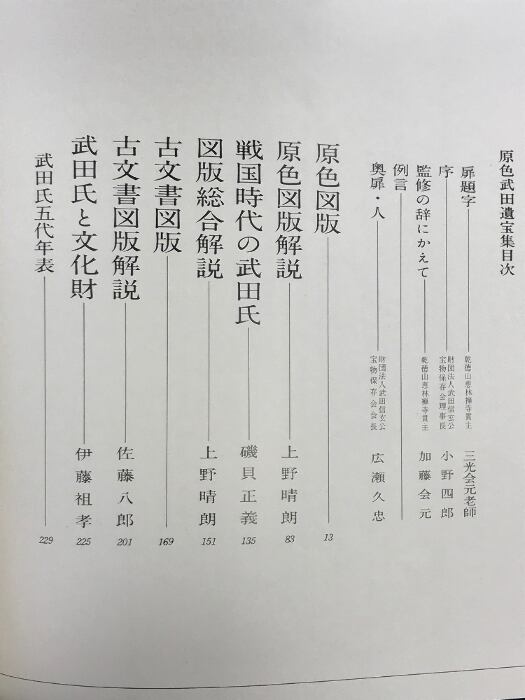 原色武田遺宝集目次
扉題字 乾徳山恵林禅寺貫主 三光会元老師
序 財団法人武田信玄公宝物保存会理事長 小野四郎
監修の辞にかえて 乾徳山恵林禅寺貫主 加藤会元
例言
奥扉・人 財団法人武田信玄公宝物保存会会長 広瀬久忠
原色図版 13
原色図版解説 上野晴朗 83
戦国時代の武田氏 磯貝正義 135
図版総合解説 上野晴朗 151
古文書図版 169
古文書図版解説 佐藤八郎 201
武田氏と文化財 伊藤祖孝 225
武田氏五代年表 229